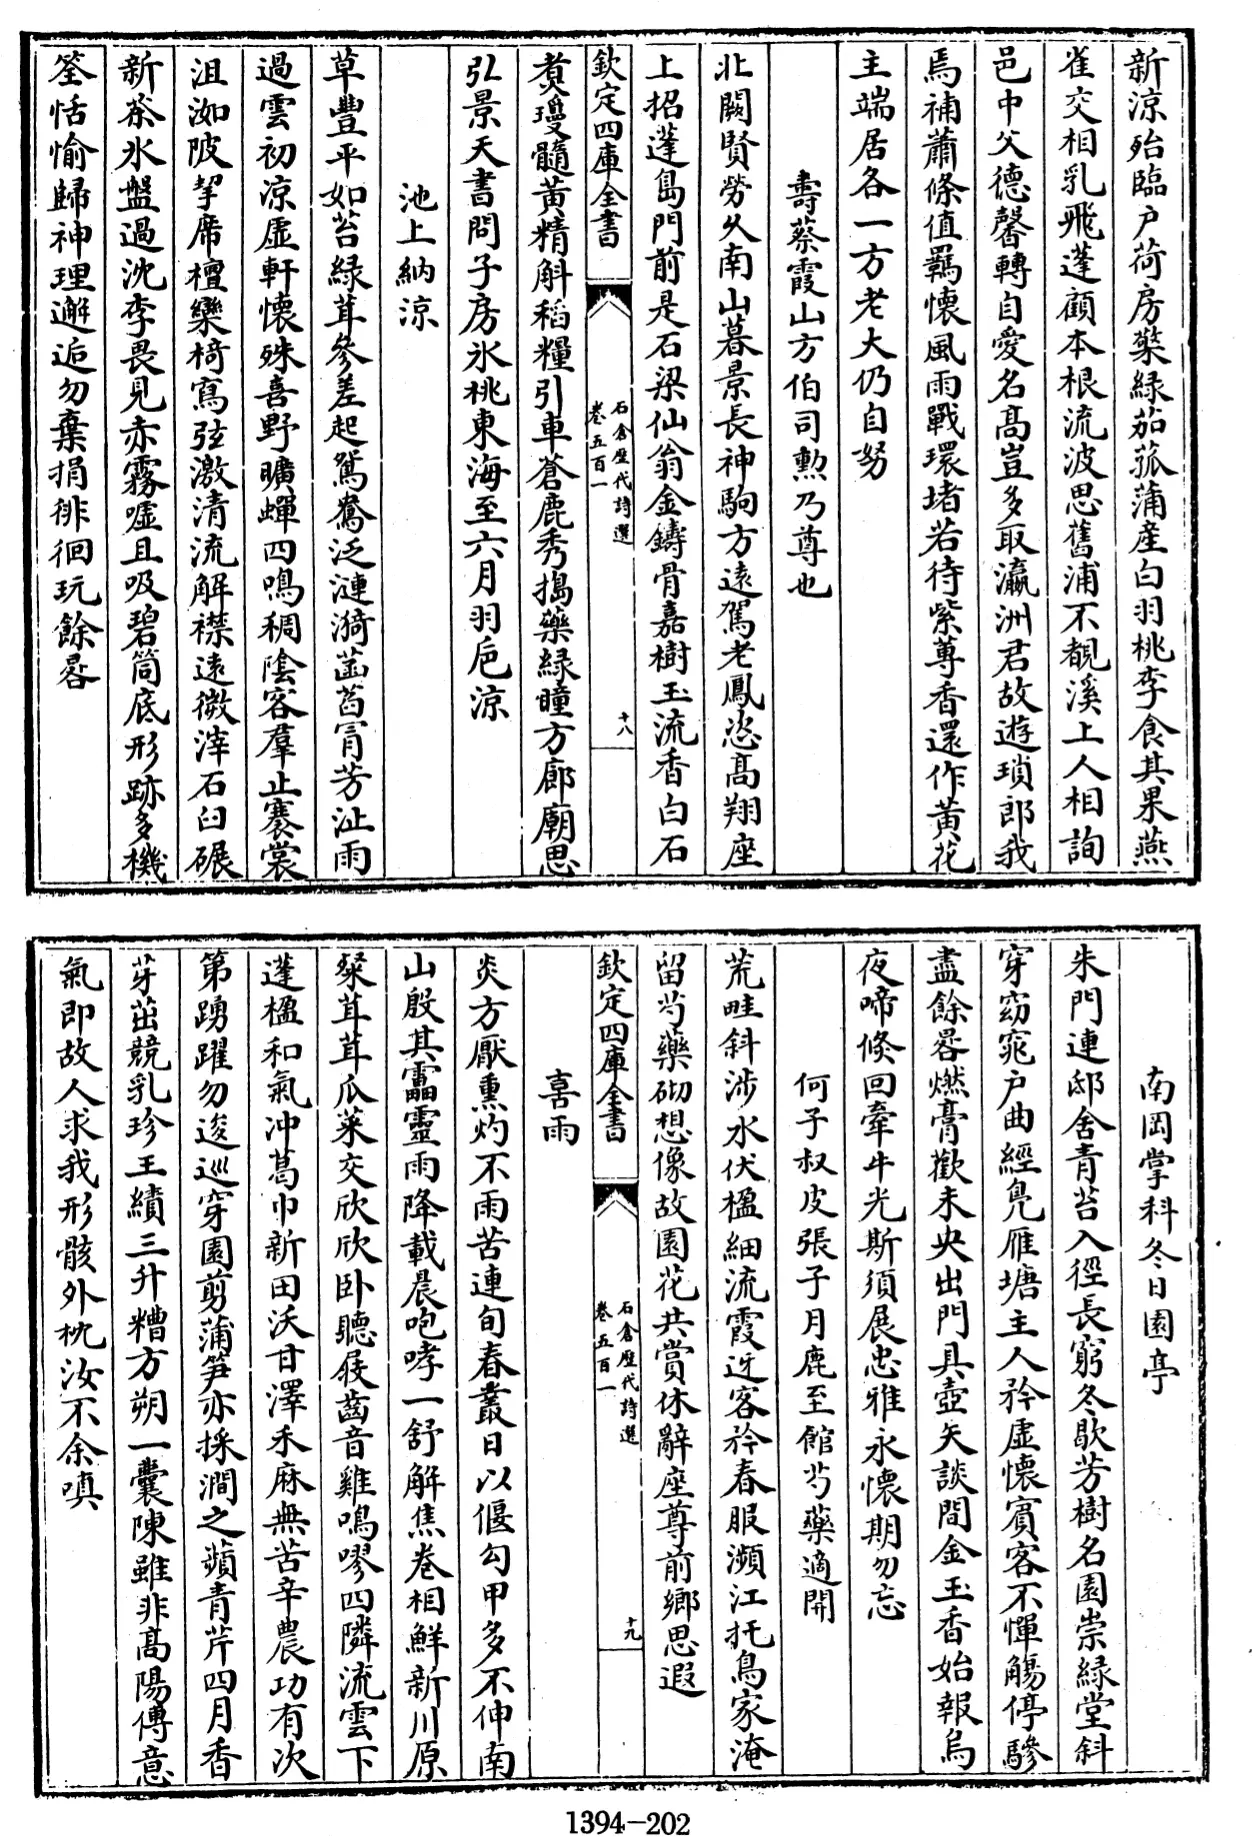 新涼殆臨户荷房蘂緑茄菰蒲産白羽桃李食其果燕
雀交相乳飛蓬顧本根流波思舊浦不覩溪上人相詢
邑中父德馨轉自愛名髙豈多取瀛洲君故遊瑣郎我
焉補蕭條值羈懷風雨戰環堵若待紫蓴香還作黄花
主端居各一方老大仍自努
壽蔡霞山方伯司勲乃尊也
北闕賢勞久南山暮景長神駒方逺駕老鳳恣髙翔座
上招蓬島門前是石梁仙翁金鑄骨嘉樹玉流香白石
欽定四庫全書
石倉歴代詩選
卷五百一
十八
煑瓊髓黄精斛稻糧引車蒼鹿秀搗藥緑瞳方廊廟思
弘景天書問子房氷桃東海至六月羽巵涼
池上納涼
草豐平如苔緑茸參差起鴛鴦泛漣漪菡萏冐芳沚雨
過雲初凉虚軒懐殊喜野曠蟬四鳴稠隂客羣止褰裳
沮洳陂挈席檀欒椅寫弦激清流解襟逺微滓石臼碾
新茶氷盤過沈李畏見赤霧嘘且吸碧筒底形跡多機
筌恬愉歸神理邂逅勿棄捐徘徊玩餘晷
南岡掌科冬日園亭
朱門連邸舍青苔入徑長窮冬歇芳樹名園崇緑堂斜
穿窈窕户曲經鳬雁塘主人矜虚懐賓客不憚觴停驂
盡餘晷燃膏歡未央出門具壺矢談間金玉香始報烏
夜啼倐回牽牛光斯須展忠雅永懷期勿忘
何子叔皮張子月鹿至館芍藥適開
荒畦斜涉水伏楹細流霞迓客矜春服瀕江托鳥家淹
留芍藥砌想像故園花共賞休辭座尊前鄉思遐
欽定四庫全書
石倉歴代詩選
卷五百一
十九
喜雨
炎方厭熏灼不雨苦連旬春叢日以偃勾甲多不伸南
山殷其靁靈雨降載晨咆哮一舒解焦卷相鮮新川原
粲茸茸瓜菜交欣欣卧聽屐齒音雞鳴嘐四隣流雲下
蓬楹和氣冲葛巾新田沃甘澤禾麻無苦辛農功有次
第踴躍勿逡巡穿園剪蒲笋亦採澗之蘋青芹四月香
芽茁競乳珍王績三升糟方朔一囊陳雖非髙陽傳意
氣即故人求我形骸外枕汝不余嗔
1394-202